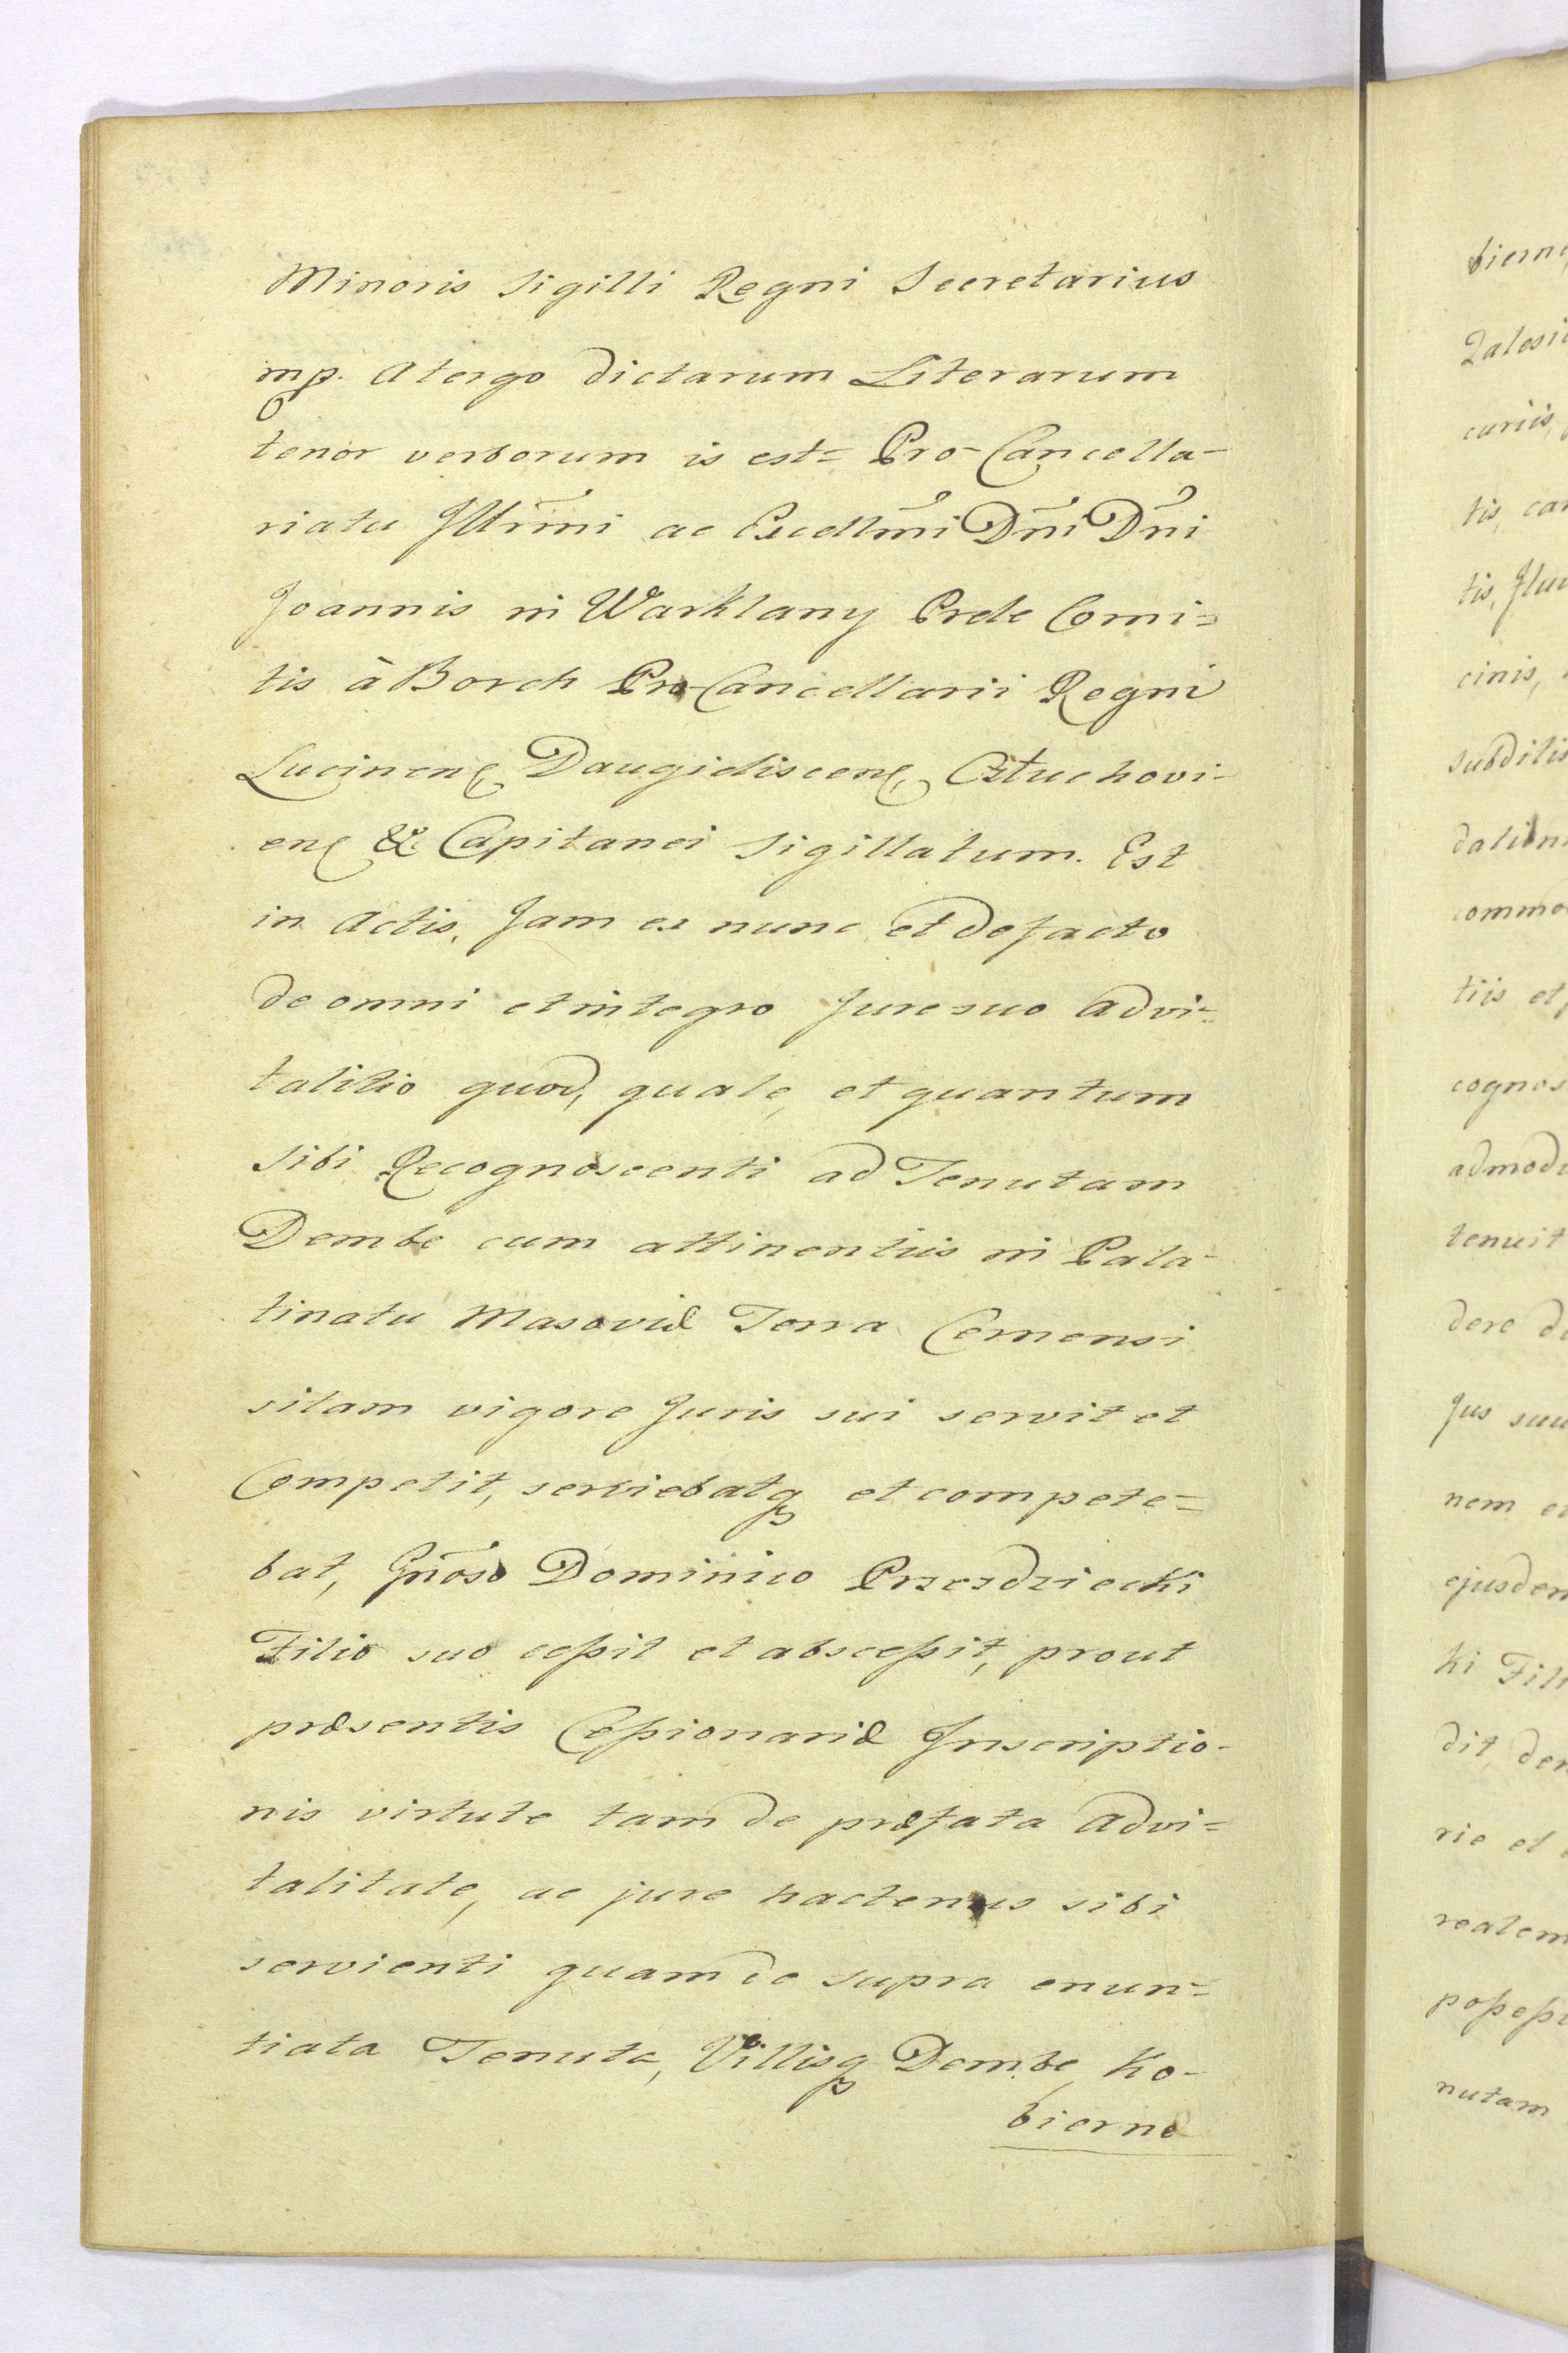 Minoris Sigilli Regni Secretarius
mp. Atergo dictarum Literarum
tenor verborum is est= Pro-Cancella-
riatu Jllr̃mi ac Excellm̃i Dñi Dñi
Joannis in Warklany Prele Comi=
tis à Borch Pro-Cancellarii Regni
Lucinen Daugieliscen, Ostuchovi-
en & Capitanei Sigillatum. Est
in Actis. Jam ex nunc et de facto
de omni et integro Jure suo Advi=
talitio quod, quale, et quantum
Sibi Recognoscenti ad Tenutam
Dembe cum attinentiis in Pala-
tinatu Masoviæ Terra Cernensi
sitam vigore Juris sui servit et
Competit, serviebatq et compete=
bat, Gñoso Dominico Przezdziecki
Filio suo cessit et abscessit, prout
præsentis Cessionariæ Jnscriptio-
nis virtute tam de præfata Advi=
talitate, ac jure hactenus sibi
servienti quam de supra enun=
tiata Tenuta, Villisq Dembe, Ko-
bierne
bierne
Zalesi
curiis,
tis, car
tis, flu
cinis,
subditis
dation
commo
tiis et
cognos
admodu
tenuit
dere d
Jus suu
nem e
ejusdem
ki Fili
dit, den
rie et
realem
possess
nutam